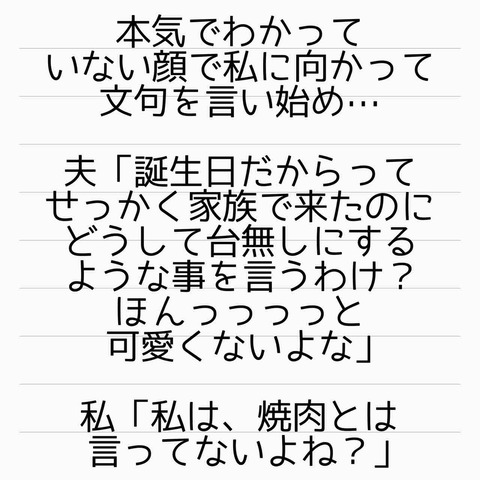 本気でわかって
いない顔で私に向かって
文句を言い始め…
夫「誕生日だからって
せっかく家族で来たのに
どうして台無しにする
ような事を言うわけ？
ほんっっっっと
可愛くないよな」
私「私は、焼肉とは
言ってないよね？」